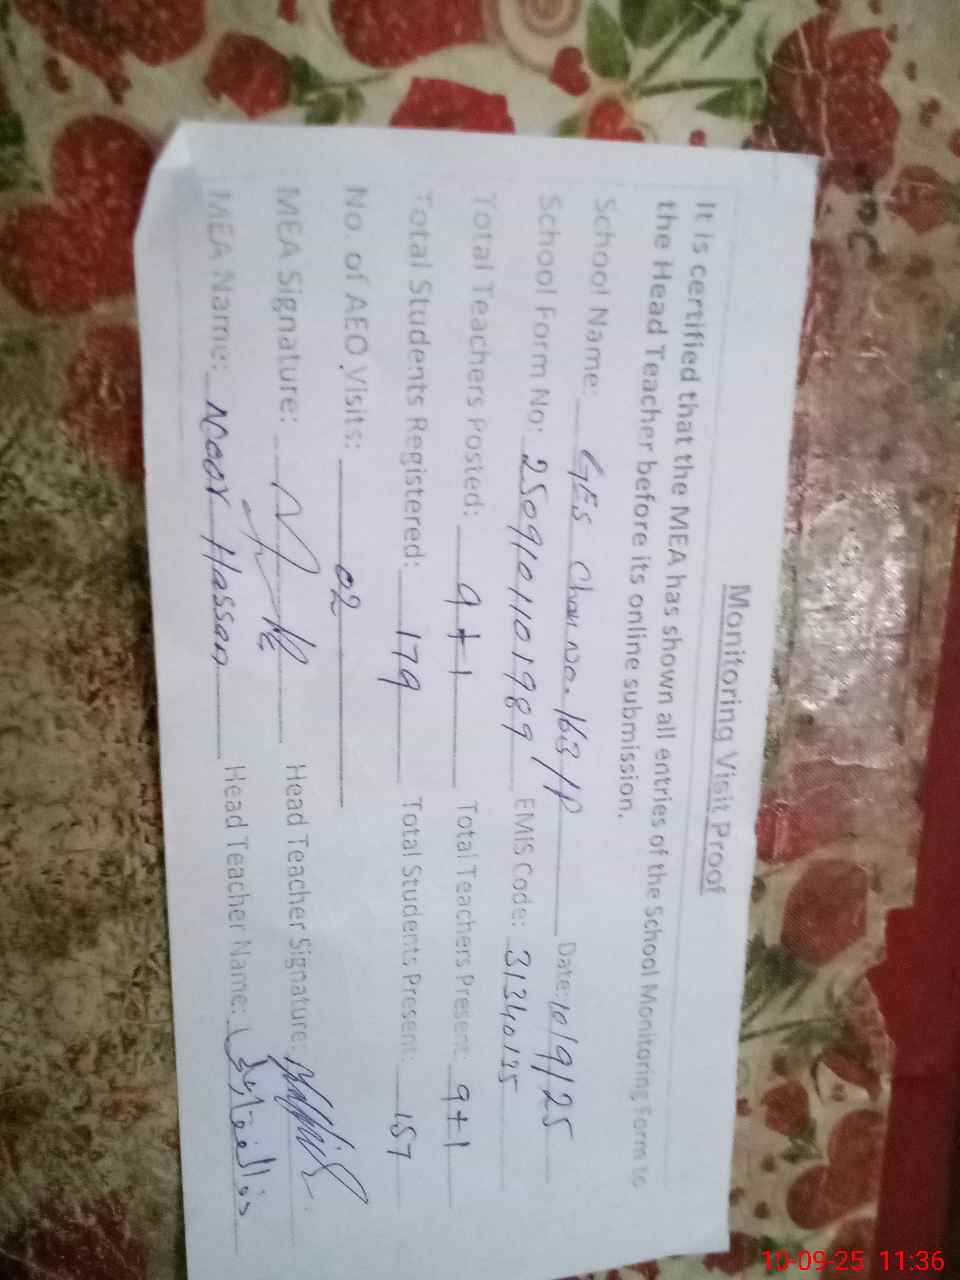 Monitoring Visit Proof
It is certified that the MEA has shown all entries of the School Monitoring Form to
the Head Teacher before its online submission.
School Name: GES Chak No. 163/P Date: 10/9/25
School Form No: 2509101101989 EMIS Code: 31340135
Total Teachers Posted: 9+1 Total Teachers Present: 9+1
Total Students Registered: 179 Total Students Present: 157
No. of AEO Visits: 02
MEA Signature: Head Teacher Signature:
MEA Name: Noor Hassan Head Teacher Name:
10-09-25 11:36